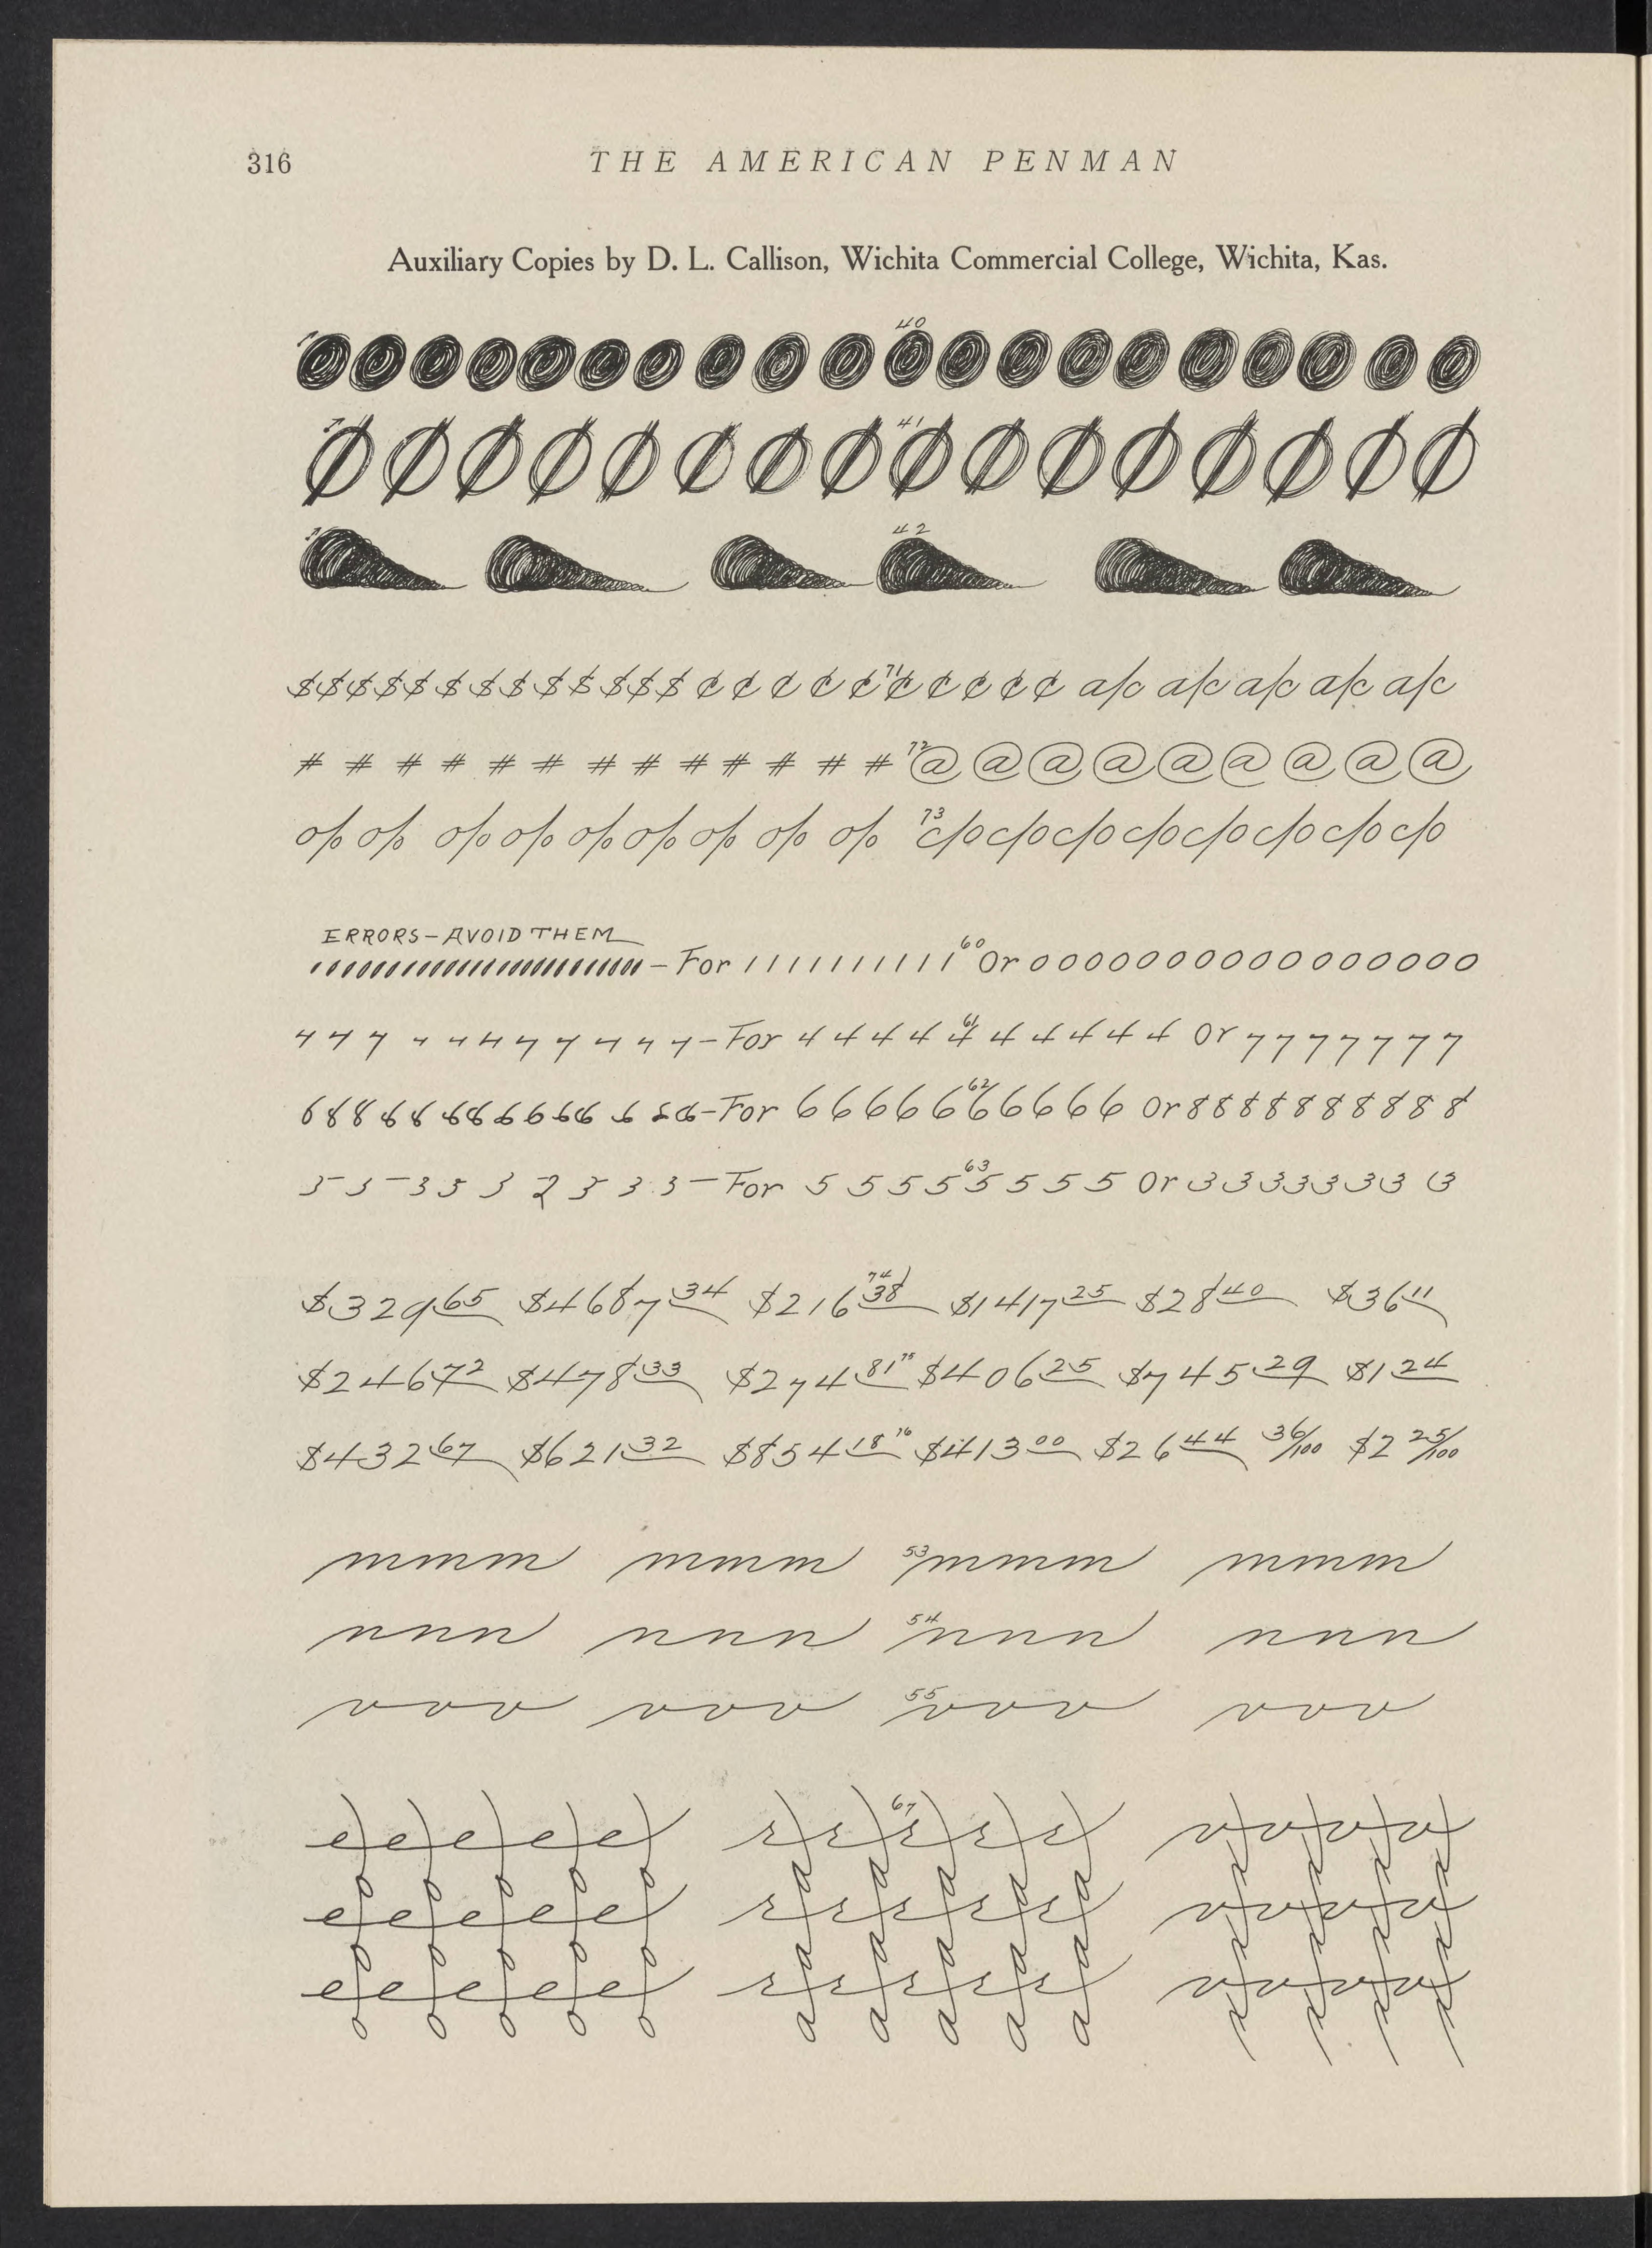 316 THE AMERICAN PENMAN
Auxiliary Copies by D. L. Callison, Wichita Commercial College, Wichita, Kas.
40
41
42
$ $ $ $ $ $ $ $ $ $ $ $ $ ¢ ¢ ¢ ¢ ¢ 71 ¢ ¢ ¢ ¢ ¢ a/c a/c a/c a/c a/c
# # # # # # # # # # # # # 72 @ @ @ @ @ @ @ @ @
o/o o/o o/o o/o o/o o/o o/o o/o o/o 73 c/o c/o c/o c/o c/o c/o c/o c/o
ERRORS - AVOID THEM
- For 1 1 1 1 1 1 1 1 1 1 1 60 Or 0 0 0 0 0 0 0 0 0 0 0 0 0 0 0 0 0
- For 4 4 4 4 61 4 4 4 4 4 4 Or 7 7 7 7 7 7 7
- For 6 6 6 6 6 62 6 6 6 6 6 Or 8 8 8 8 8 8 8 8 8 8
- For 5 5 5 5 63 5 5 5 5 Or 3 3 3 3 3 3 3 3
$329 65 $4687 34 $216 74 38 $1417 25 $28 40 $36 11
$246 72 $478 33 $274 81 75 $406 25 $745 29 $1 24
$432 67 $621 32 $854 18 76 $413 00 $26 44 36/100 $2 25/100
mmm mmm 53 mmm mmm
nnn nnn 54 nnn nnn
vvv vvv 55 vvv vvv
e e e e e r r 67 r r r v v v v
o o o o o a a a a a
e e e e e r r r r r v v v v
o o o o o a a a a a
e e e e e r r r r r v v v v
o o o o o a a a a a